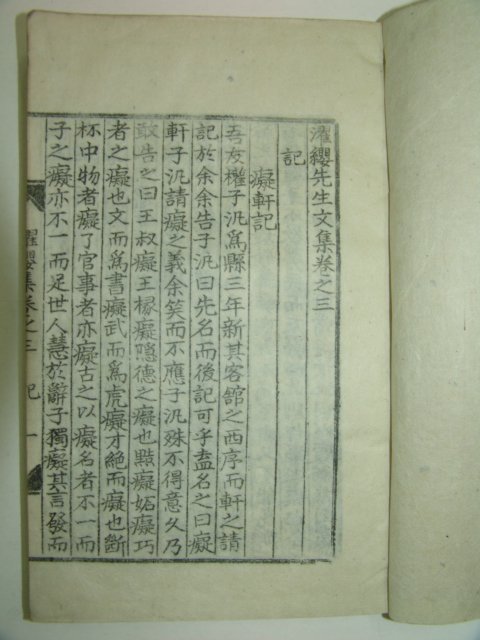 濯纓先生文集卷之三
記
癡軒記
吾友權子汎爲縣三年新其客館之西序而軒之請
記於余余告子汎曰先名而後記可乎盍名之曰癡
軒子汎請癡之義余笑而不應子汎殊不得意久乃
敢告之曰王叔癡王掾癡隱德之癡也點癡妬癡巧
者之癡也文而爲書癡武而爲虎癡才絶而癡也斷
杯中物者癡了官事者亦癡古之以癡名者不一而
子之癡亦不一而足世人慧於辭子獨癡其言發而
濯纓集卷之三 記 一